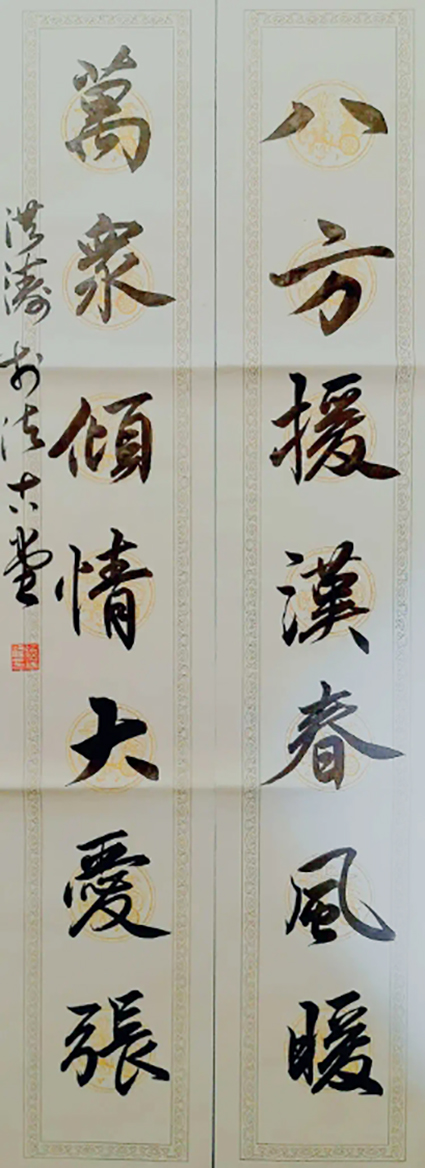 八方援漢春風暖
萬衆傾情大愛張
洪濤於法古堂